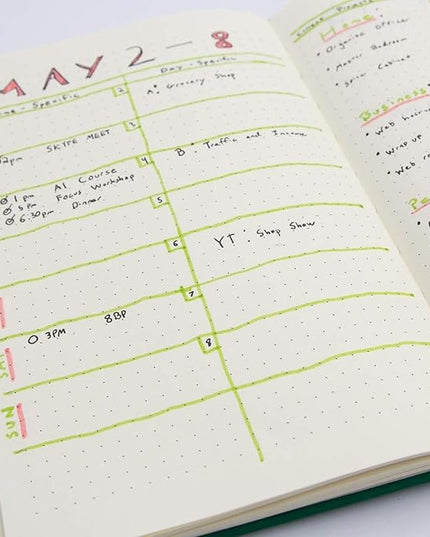 MAY 2 - 8
Specific
Day - Specific
2
A: Grocery Shop
3
12pm SKYPE MEET
4
1 pm AI Course
5pm Focus Workshop
6:30pm Dinner
B Traffic and Income
5
6
YT: Shop Show
7
3PM 8BP
8
SAT
SUN
Home
Organize Office
Master Bedroom
Spice Cabinet
Business
Web
Wrap up
Web